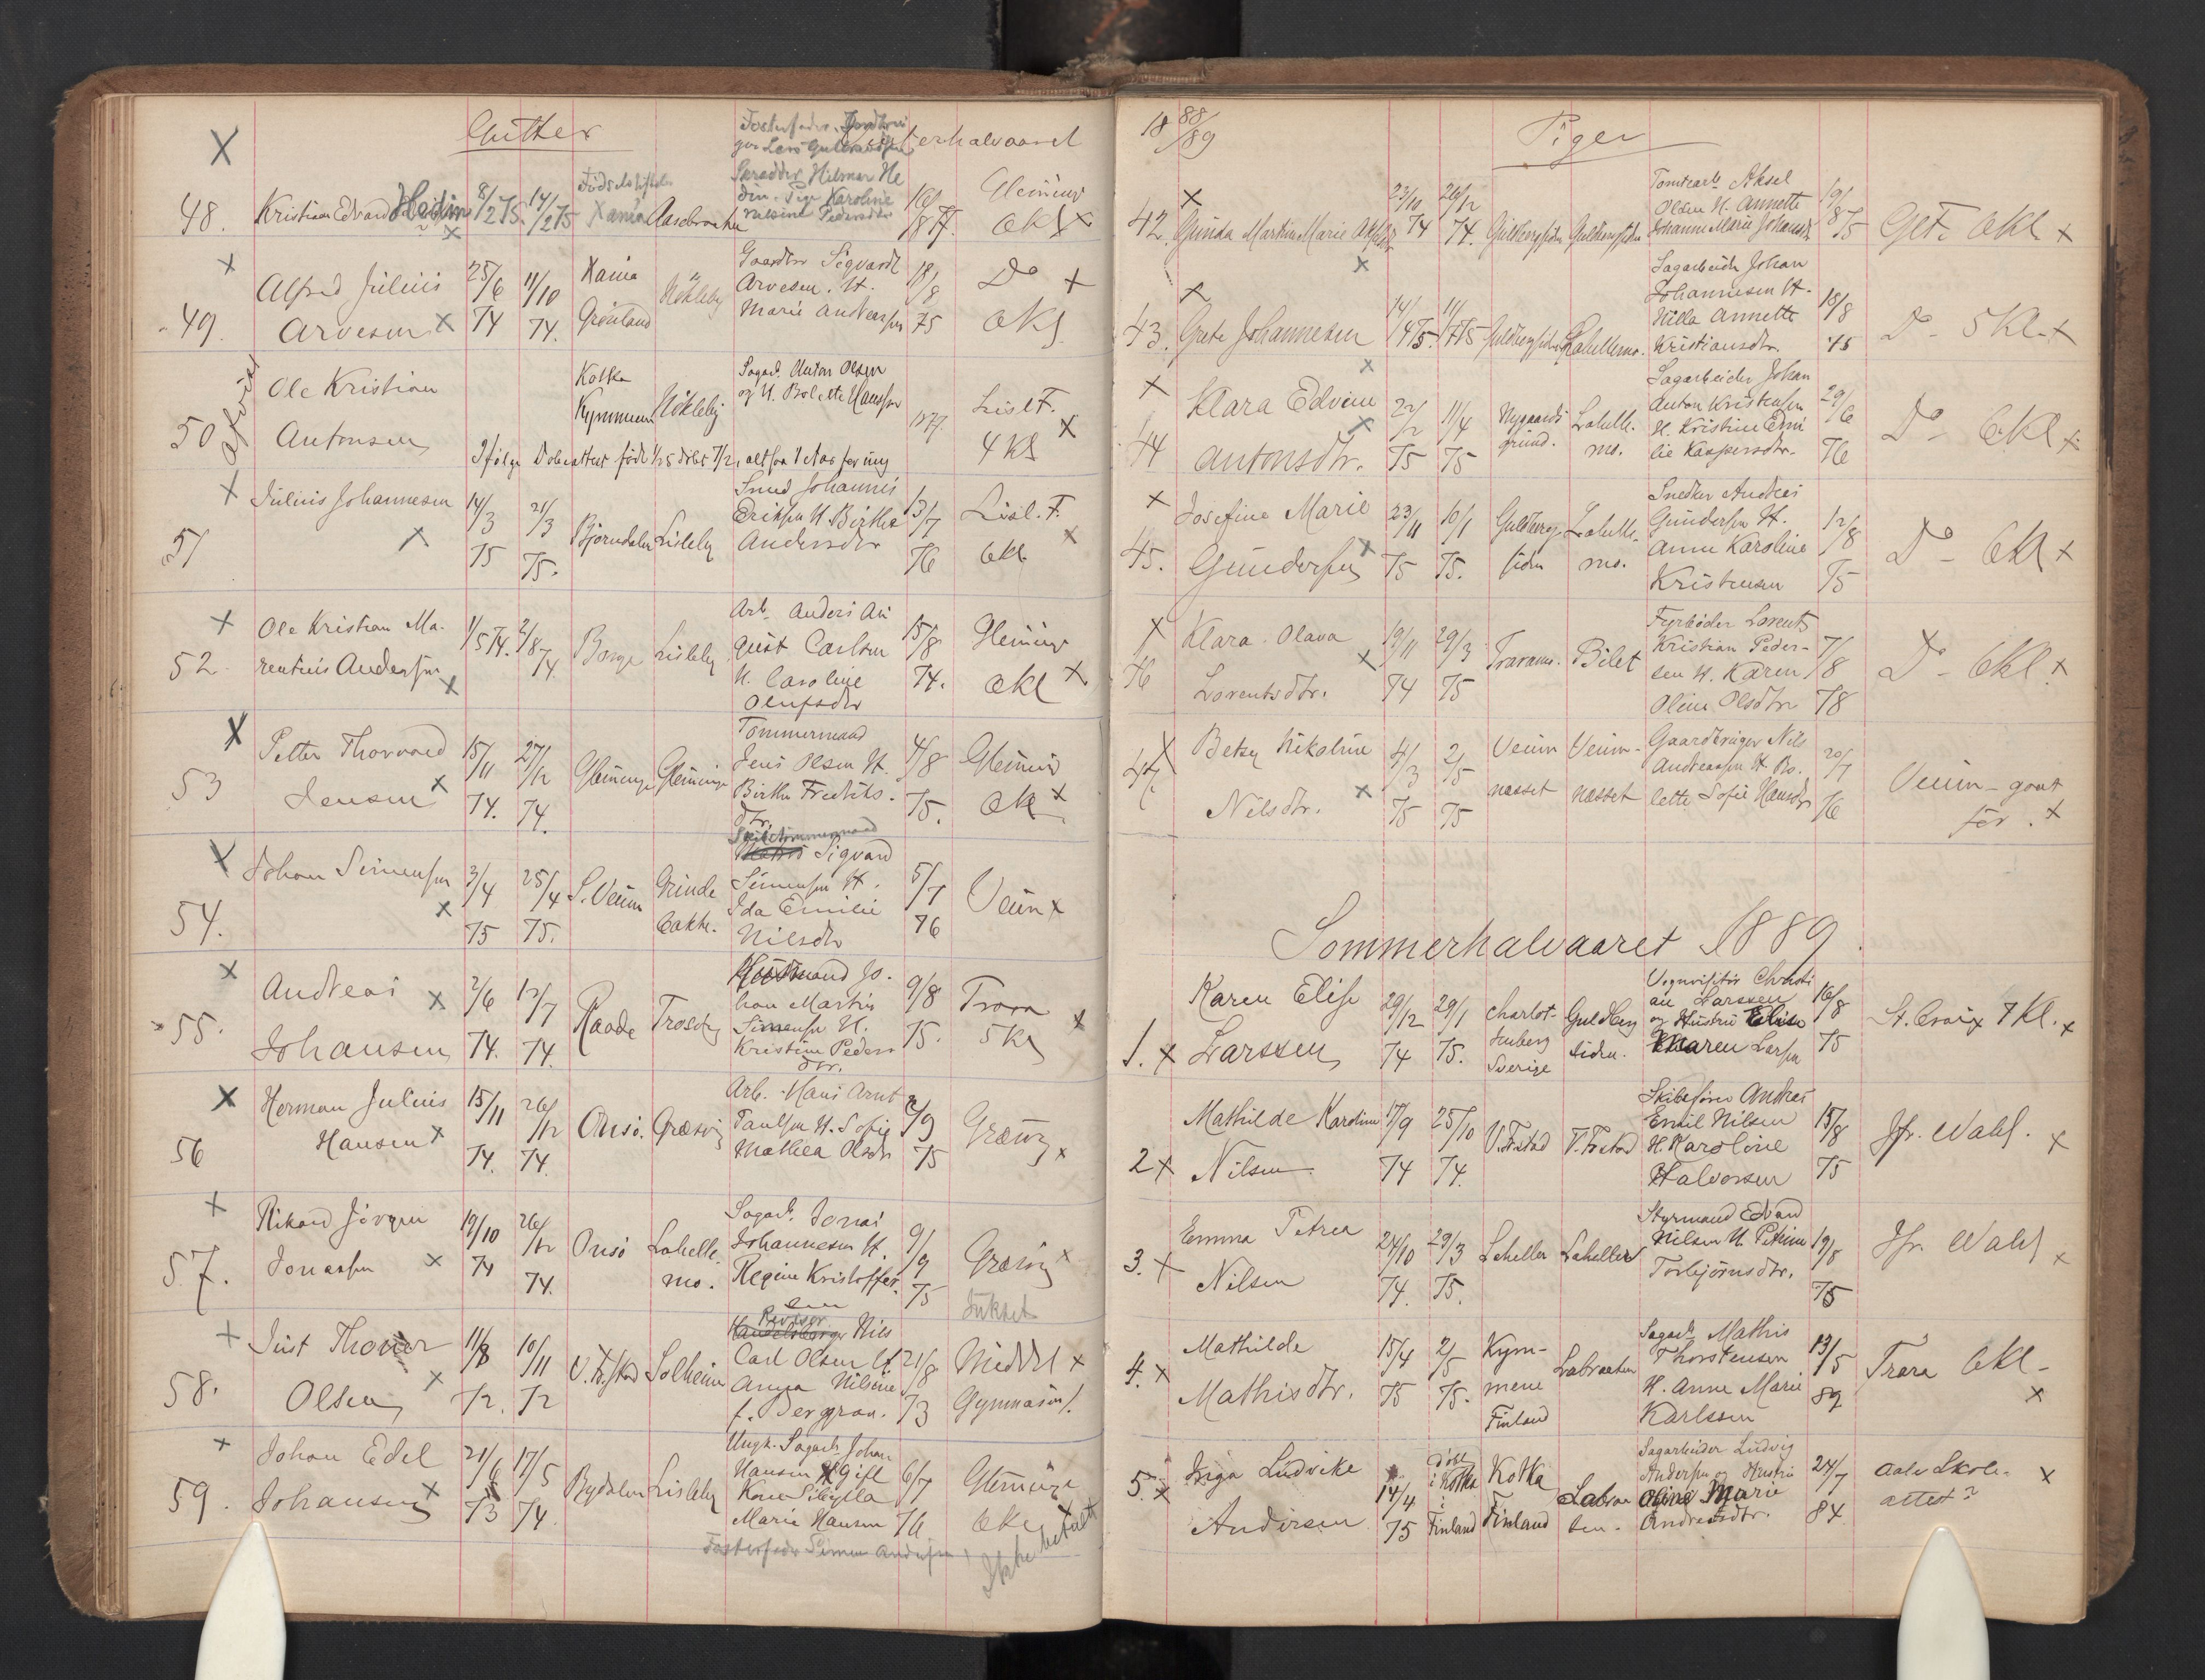 Gutter
Vinterhalvaaret
48. Kristian Edvard Hedin 8/2 75. 14/2 75 Xania
Skrædder Hilmar He
din. Pige Karoline
Glemminge
6 Kl X
49. Alfred Julius
Arvesen X
25/6 74
11/10 74.
Xania
Grønland
Nökleby
Gaardbr Sigvardt
Arvesen. H.
Marie Andersen
18/8 75
Do X
6 Kl
50 Ole Kristian
Antonsen
Kotka
Kymmene
Nökleby
Sagarb. Anton Olsen
og H. Bolette Hansen
Lisl. F.
4 Kl X
Ifølge Dobsattest født
51 Julius Johannesen
14/3 75
21/3 75.
Bjørndalen Lisleby
Smed Johannes
Eriksen H. Birthe
Andersdtr
13/7 76
Lisl. F.
6 Kl X
52 Ole Kristian Ma-
rentius Andersen
1/5 74. 2/8 74
Borge Lisleby
Arb. Anders Au
gust Carlsen
H. Caroline
Olufsdtr
15/8 74.
Glemminge
6 Kl X
53 Petter Thorvald
Jensen X
15/11 74.
27/12 74.
Glemminge Glemminge
Tømmermand
Jens Olsen H.
Birthe Fredriks-
dtr.
4/8 75.
Glemminge
6 Kl X
54. Johan Simensen
3/4 75
25/4 75.
S. Veum
Grinde
bakke.
Skibstømmermand
Sigvard
Simensen H.
Ida Emilie
Nilsdtr
5/7 76
Veum X
55. Andreas
Johansen
2/6 74.
12/7 74.
Raade Trosvig
Husmand Jo-
han Martin
Simensen H.
Kristine Peders
dtr.
9/8 75.
Trara
5 Kl X
56 Herman Julius
Hansen X
15/11 74.
26/12 74.
Onsø. Græsvig
Arb. Hans Arnt
Paulsen H. Sofie
Mathea Olsdtr
2/9 75
Græsvig X
57. Rikard Jørgen
Jonassen X
19/10 74
26/12 74.
Onsø Lahelle-
mo.
Sagarb. Jonas
Johannesen H.
Regine Kristoffer-
sen
9/9 75
Græsvig X
58. Just Thoner
Olsen X
11/8 72.
10/11 72
V. Fr.stad Solheim
Revisor
Nils
Carl Olsen H.
Anna Nilsine
f. Berggran.
21/8 73
Middel X
Gymnasiet.
59. Johan Edel
Johansen X
21/6 73
17/5 74.
Bydalen Lisleby
Ungk. Sagarb. Johan
Hansen Gift
Kone Sibylla
Marie Hansen
6/7 76
Glemminge
6 Kl X
Fosterfader Simen Andersen
Ikke betalt
18 88/89
Piger
42. Gunda Martine Marie
23/10 74
26/12 74.
Guldbergsiden Guldbergsiden
Tomtearb. Aksel
Olsen H. Annette
Johanne Marie Johansdtr
19/8 75
Gl. F. 6 Kl X
43. Grete Johannesen
14/4 75.
11/7 75
Guldbergsiden Lahellemo.
Sagarbeider Johan
Johannesen H.
Hilla Annette
Kristiansdtr.
18/8 75
Do - 5 Kl X
44 Klara Edvine
Antonsdtr.
22/2 75
11/4 75
Nygaards
grund.
Lahelle-
mo.
Sagarbeider Johan
Anton Kristensen
H. Kristine Emi
lie Kaspersdtr.
29/6 76
Do - 6 Kl X
45. Josefine Marie
Gundersen X
23/11 75
10/1 75.
Guldberg-
siden
Lahelle-
mo.
Snedker Andreas
Gundersen H.
Anne Karoline
Kristensen
12/8 75
Do - 6 Kl X
46 Klara Olava
Lorentsdtr.
19/11 74
29/3 75
Bilet
Fyrbøder Lorents
Kristian Peder-
sen H. Karen
Oline Olsdtr
7/8 78
Do - 6 Kl X
47 Betsy Nikoline
Nilsdtr. X
4/3 75
2/5 75
Veum
næsset
Veum-
næsset
Gaardbruger Nils
Andreassen H. Bo-
lette Sofie Hansdtr
20/7 76
Veum - gaat
før. X
Sommerhalvaaret 1889.
1. X Karen Elise
Larssen
29/12 74
29/1 75.
Charlot-
tenberg
Sverige
Guldberg
siden.
Vognvisitør Christi
an Larssen
og Hustru Elise
Maren Larsen
16/8 75
St. Croix 7 Kl. X
2 X Mathilde Karoline
Nilsen
17/9 74
25/10 74.
V. Fr.stad V. Fr.stad
Skibsfører Andreas
Emil Nilsen
H. Karoline
Halvorsen
15/8 75
Jfr. Wahl. X
3. X Emma Petrea
Nilsen
24/10 74.
29/3 75.
Lahellen Lahellen
Styrmand Edvard
Nilsen H. Petrine
Torbjørnsdtr.
19/8 75
Jfr. Wahl X
4. X Mathilde
Mathisdtr.
15/4 75
2/5 75.
Kym-
mene
Finland
Labraaten
Sagarb. Mathis
Thorstensen
H. Anne Marie
Karlssen
13/5 89
Trara 6 Kl -
X
5. X Inga Ludvike
Andersen
14/4 75
Døbt
i Kotka
i
Finland
Kotka
Finland
Labraa
ten.
Sagarbeider Ludvig
Andersen og Hustru
Oline Marie
Andreasdtr.
24/7 84
Skole-
attest? X